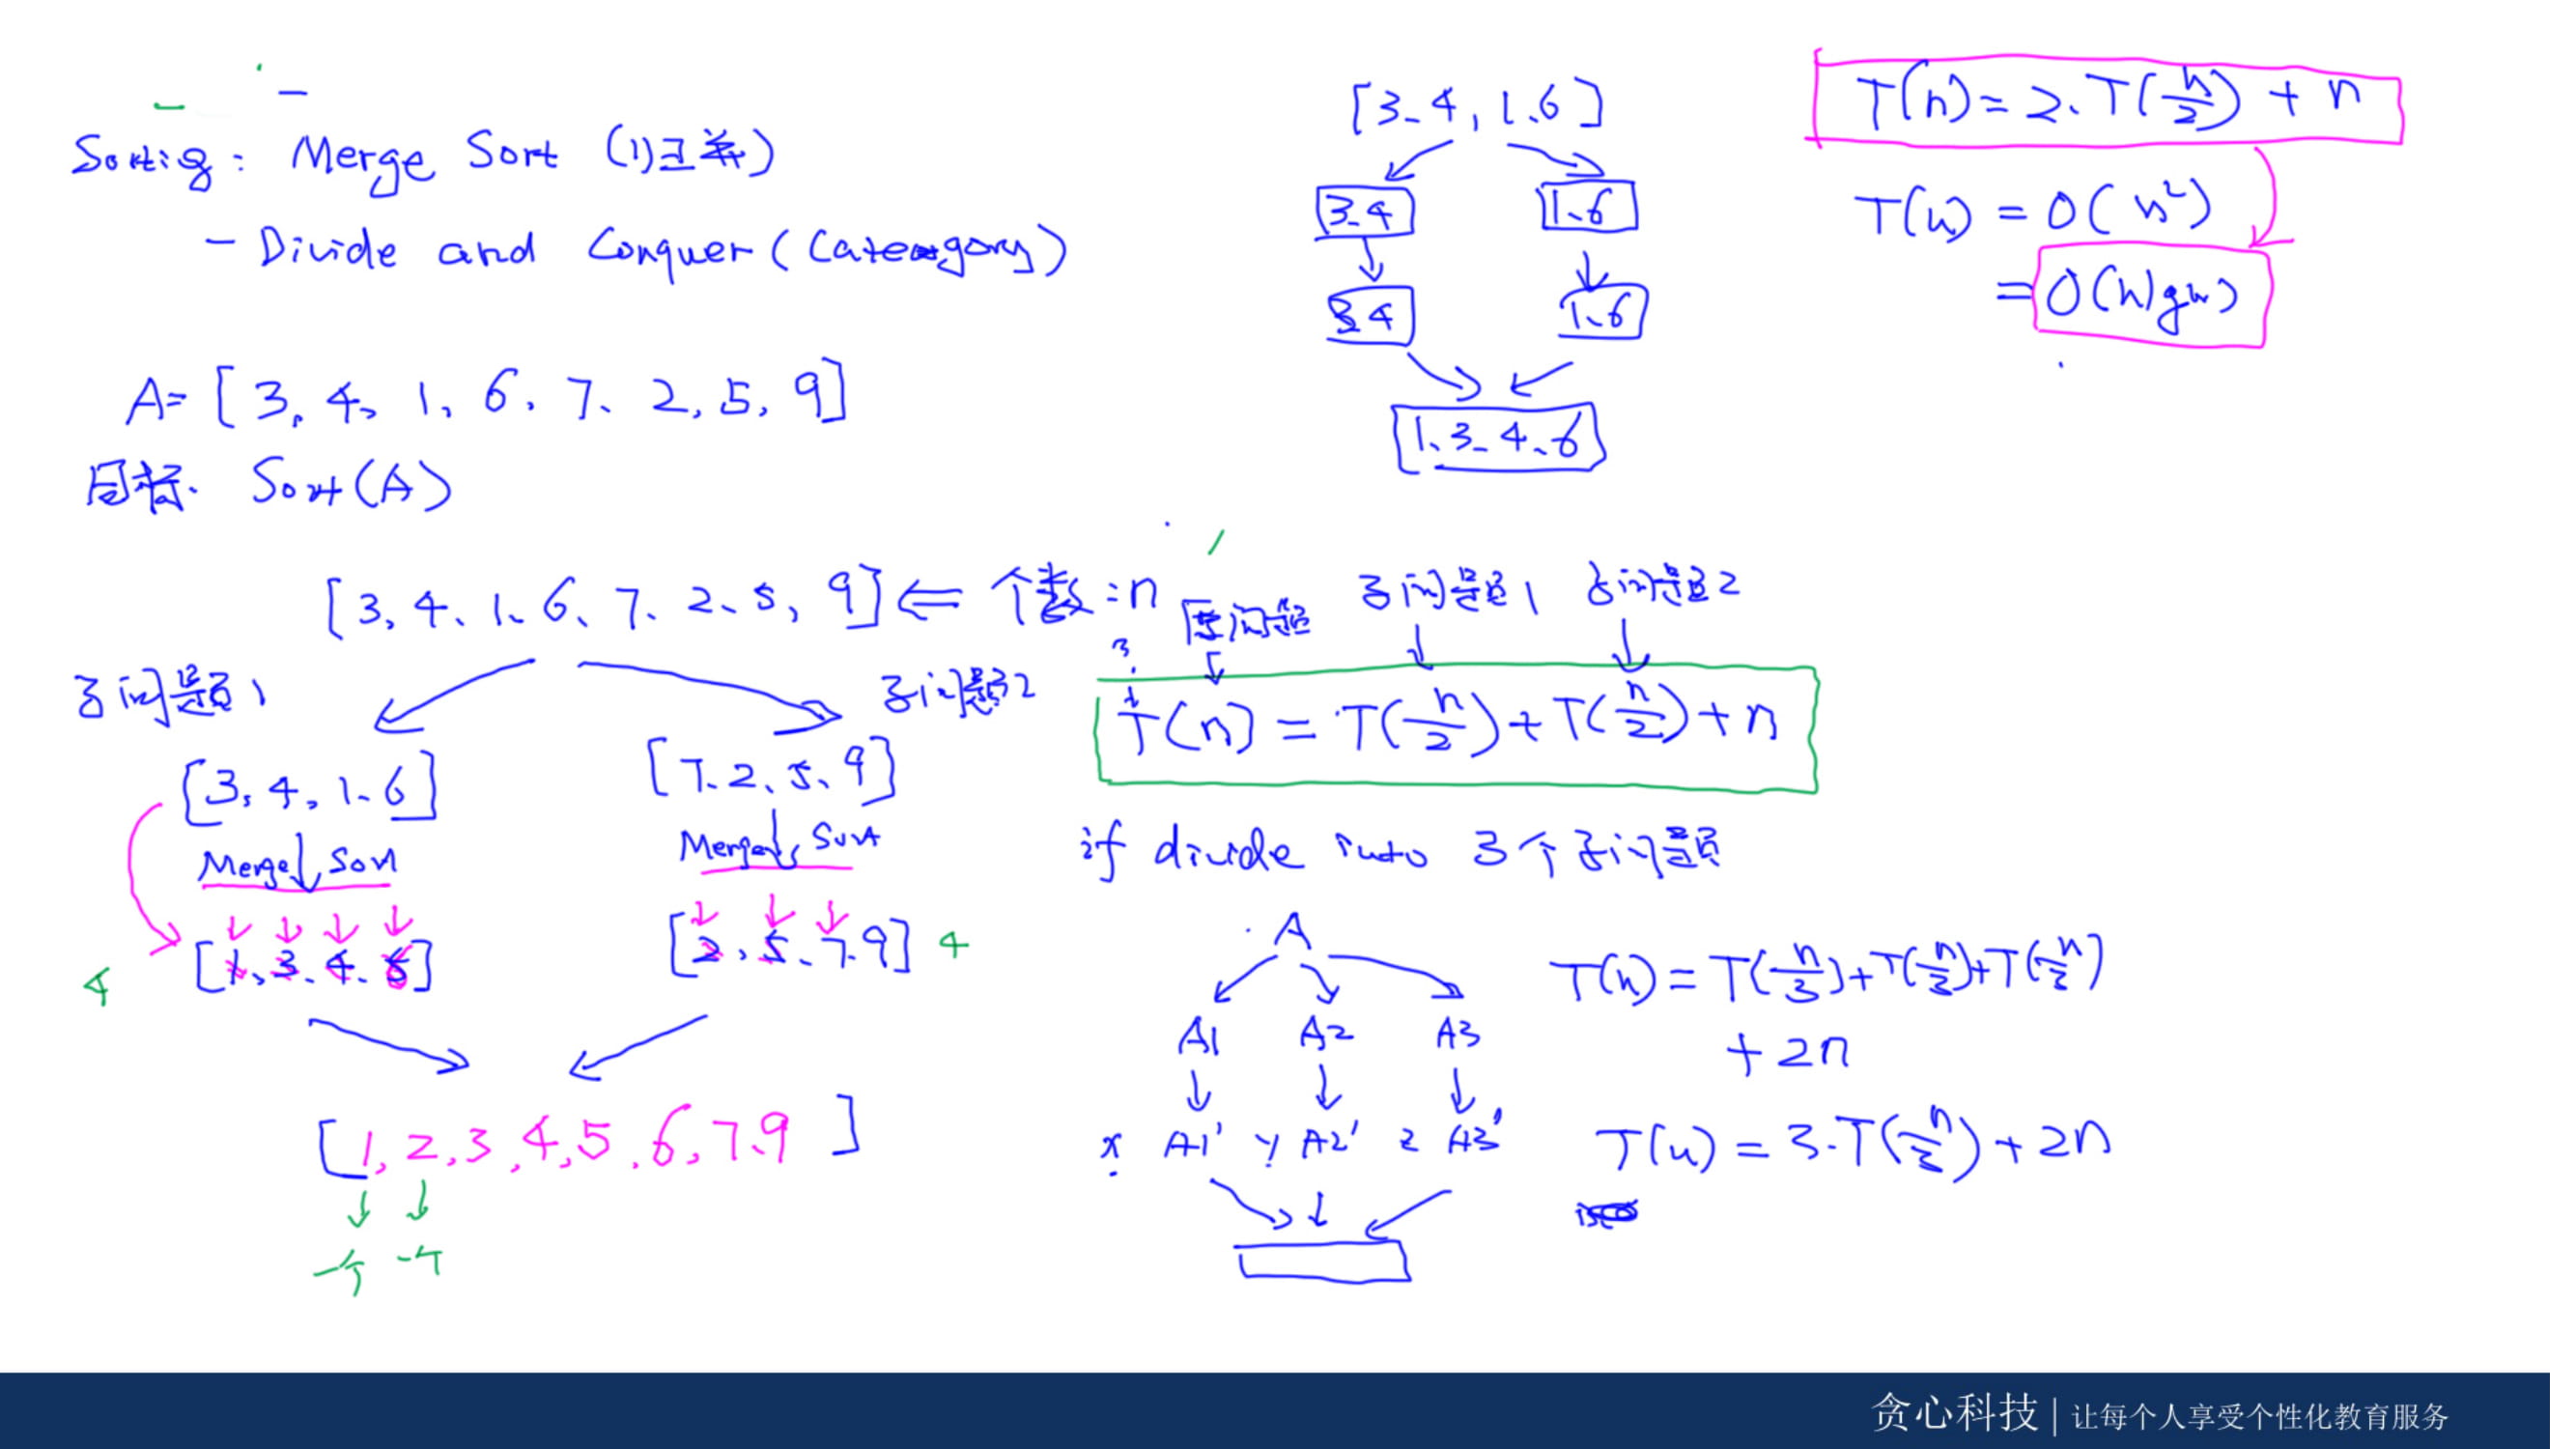 Sorting: Merge Sort (归并)
- Divide and Conquer (Category)
A= [3, 4, 1, 6, 7, 2, 5, 9]
目标. Sort(A)
[3, 4, 1, 6, 7, 2, 5, 9] ⇐ 个数 = n
子问题1
子问题2
[3, 4, 1, 6]
[7, 2, 5, 9]
Merge Sort
Merge Sort
4 [1, 3, 4, 6]
[2, 5, 7, 9] 4
[1, 2, 3, 4, 5, 6, 7, 9]
一个 一个
[3, 4, 1, 6]
3, 4
1, 6
3, 4
1, 6
1, 3, 4, 6
T(n) = 2·T(n/2) + n
T(n) = O(n²)
= O(n lg n)
原问题 子问题1 子问题2
T(n) = T(n/2) + T(n/2) + n
if divide into 3个子问题
A
A1 A2 A3
x A1' y A2' z A3'
T(n) = T(n/3) + T(n/3) + T(n/3)
+ 2n
T(n) = 3·T(n/3) + 2n
贪心科技 | 让每个人享受个性化教育服务